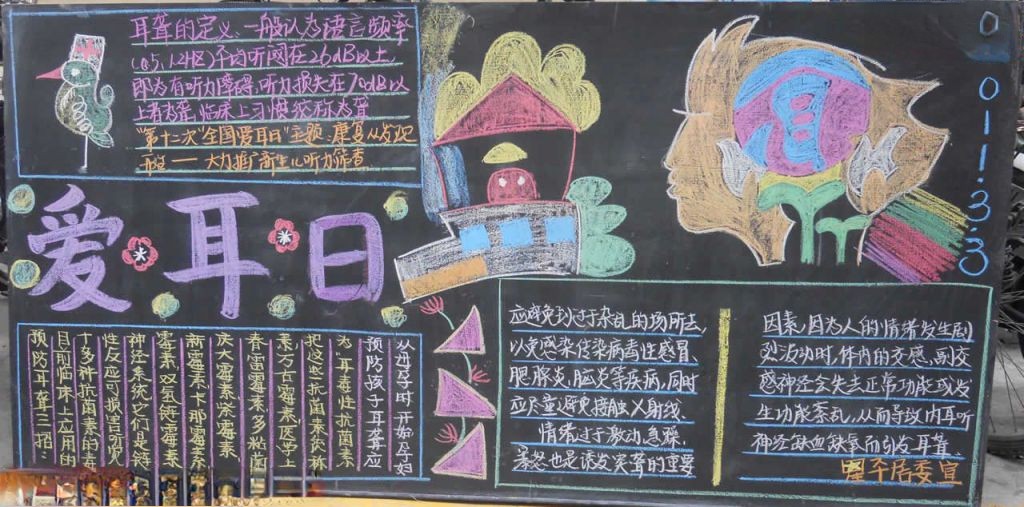 耳聋的定义、一般认为语言频率
(0.5,1,2HZ)平均听阈在26dB以上,
即为有听力障碍,听力损失在70dB以
上者为聋,临床上习惯统称为聋
"第十二次"全国爱耳日"主题、康复从发现
开始——大力推广新生儿听力筛查
爱耳日
0
0
1
1
.
3
.
3
从母子时开始孕妇
预防孩子耳聋应
为耳毒性抗菌素
把这些抗菌素统称
素万古霉素医学上
春雷霉素多粘菌
庆大霉素紫霉素
新霉素卡那霉素
霉素,双氢链霉素
神经系统它们是链
性反应可损害听觉
十多种抗菌素的毒
目前临床上应用的
预防耳聋三招:
应避免到过于杂乱的场所去,
以免感染传染病毒性感冒、
腮腺炎、脑炎等疾病,同时
应尽量避免接触X射线、
情绪过于激动、急躁、
暴怒也是诱发突聋的重要
因素,因为人的情绪发生剧
烈活动时,体内的交感、副交
感神经会失去正常功能或发
生功能紊乱,从而导致内耳听
神经缺血缺氧而引发耳聋、
居委宣